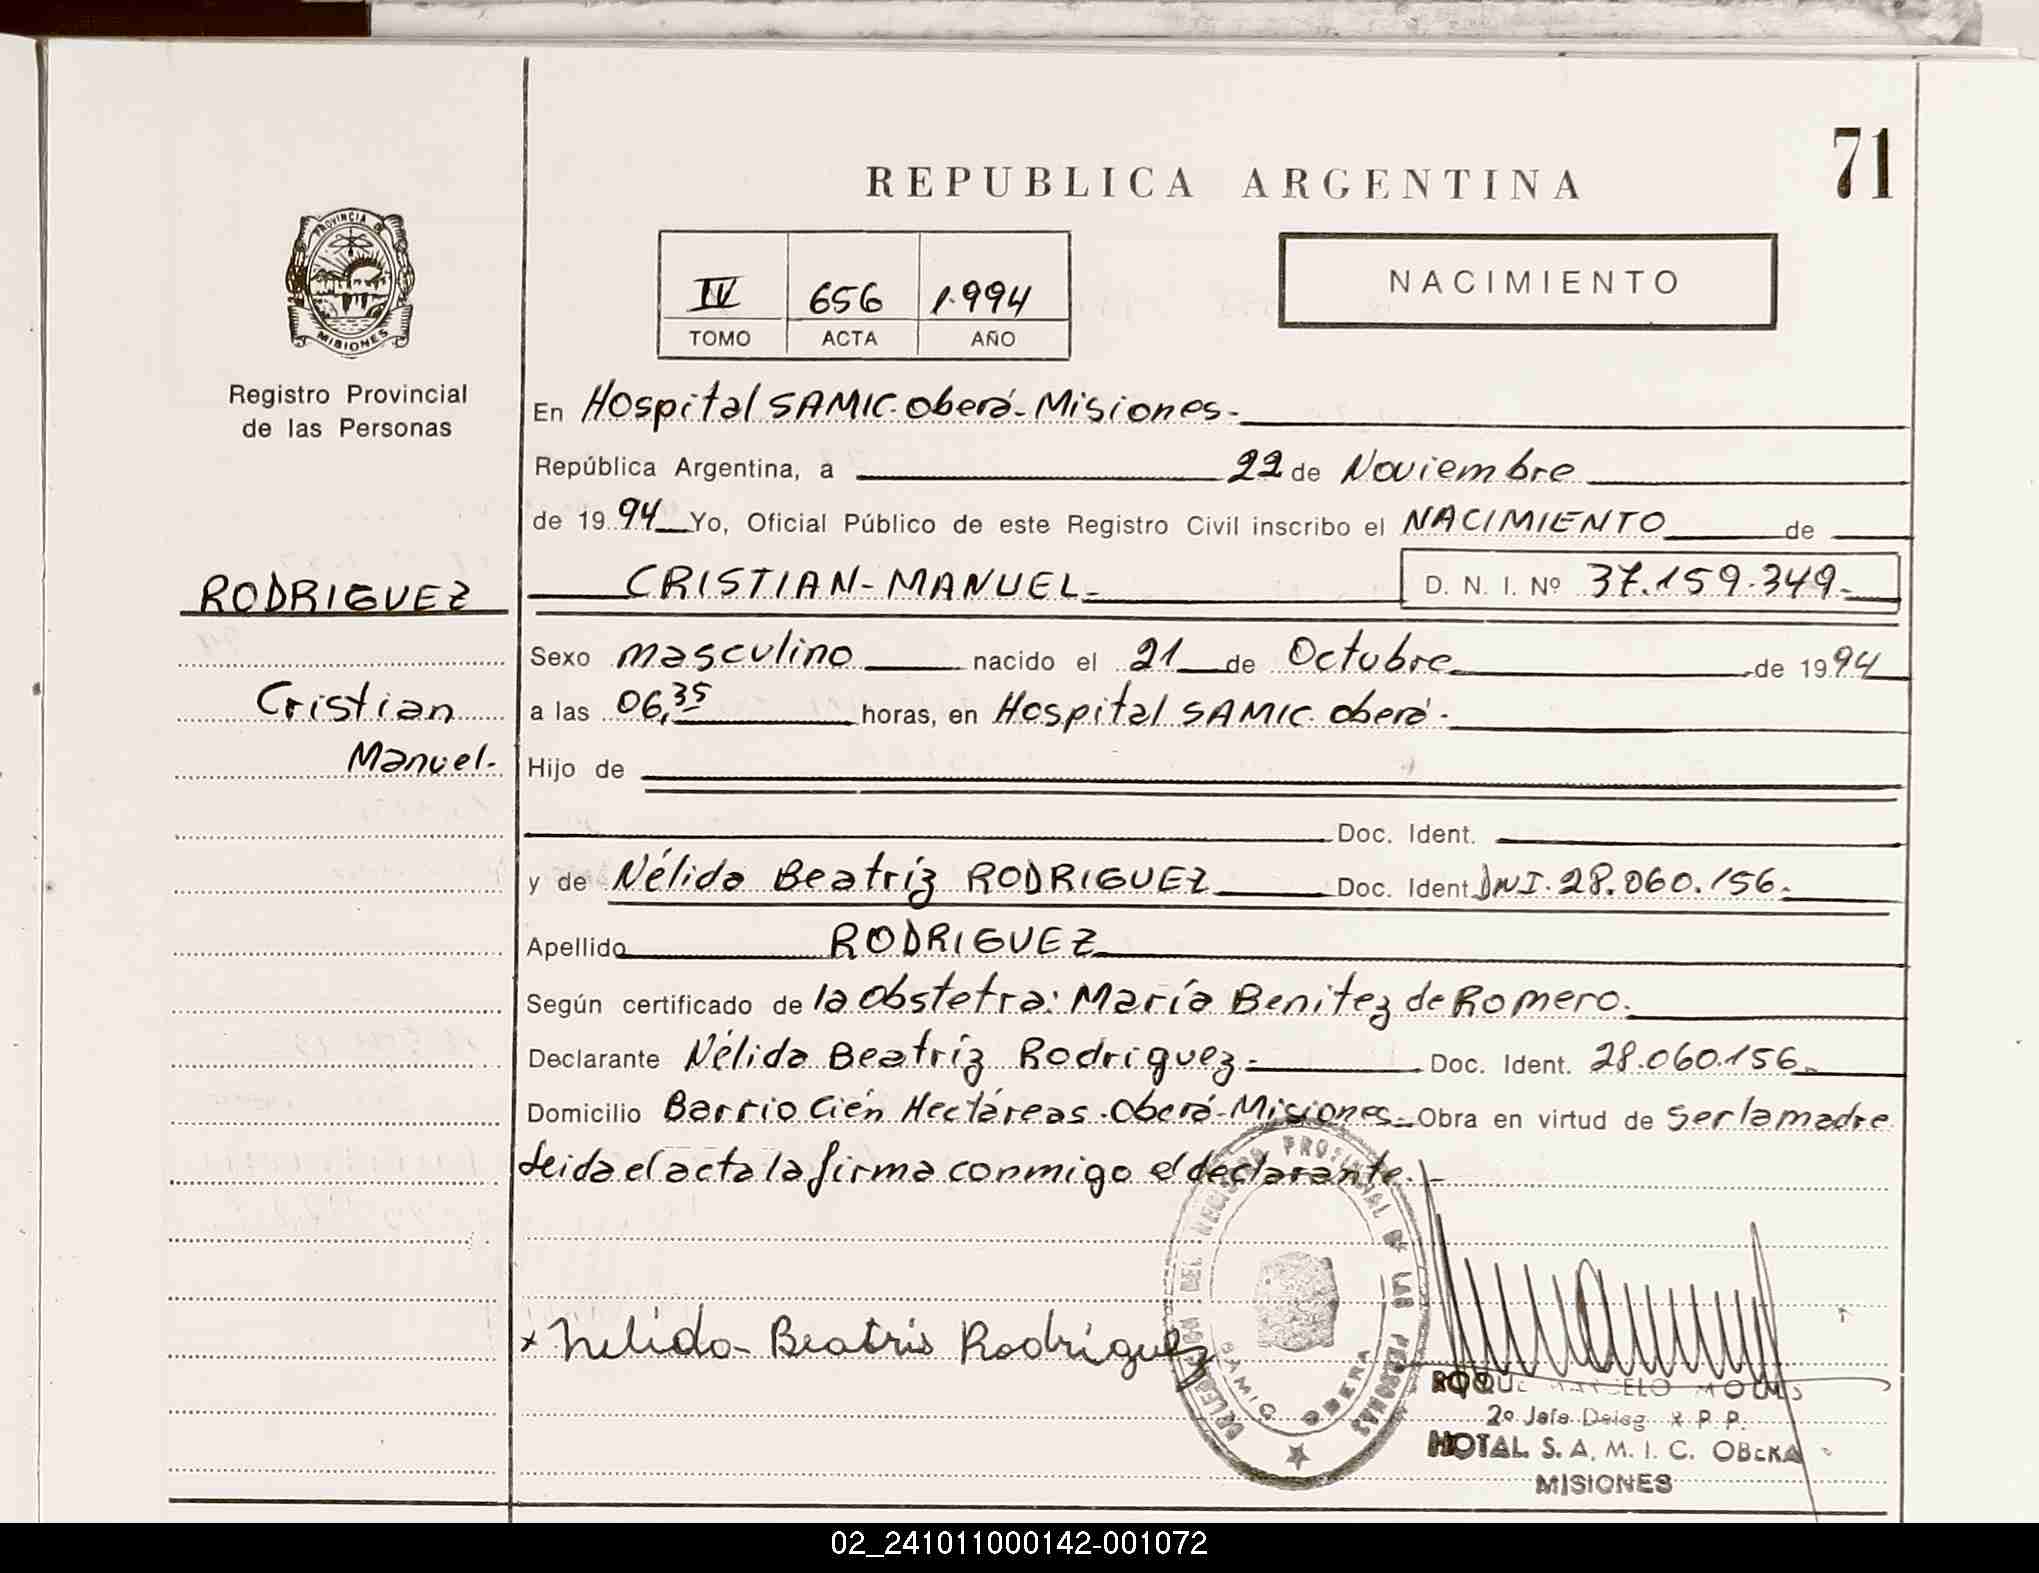 71
REPUBLICA ARGENTINA
PROVINCIA DE
MISIONES
IV 656 1.994
TOMO ACTA AÑO
NACIMIENTO
Registro Provincial
de las Personas
En Hospital SAMIC. Oberá - Misiones.-
República Argentina, a 22 de Noviembre
de 1994 Yo, Oficial Público de este Registro Civil inscribo el NACIMIENTO de
RODRIGUEZ
CRISTIAN-MANUEL.- D. N. I. Nº 37.159.349.-
Sexo masculino nacido el 21 de Octubre de 1994
Cristian
a las 06,35 horas, en Hospital SAMIC. Oberá.-
Manuel.-
Hijo de
Doc. Ident.
y de Nélida Beatríz RODRIGUEZ Doc. Ident. DNI. 28.060.156.-
Apellido RODRIGUEZ
Según certificado de la obstetra: María Benitez de Romero.
Declarante Nélida Beatríz Rodriguez.- Doc. Ident. 28.060.156.
Domicilio Barrio Cién Hectáreas. Oberá - Misiones.- Obra en virtud de ser la madre
Leida el acta la firma conmigo el declarante.-
DELEGACION DEL REGISTRO PROVINCIAL DE LAS PERSONAS
SAMIC OBERA
x Nelida Beatris Rodriguez
ROQUE MARCELO
2º Jefe Deleg. R. P. P.
HOTAL S. A. M. I. C. OBERA
MISIONES
02_241011000142-001072